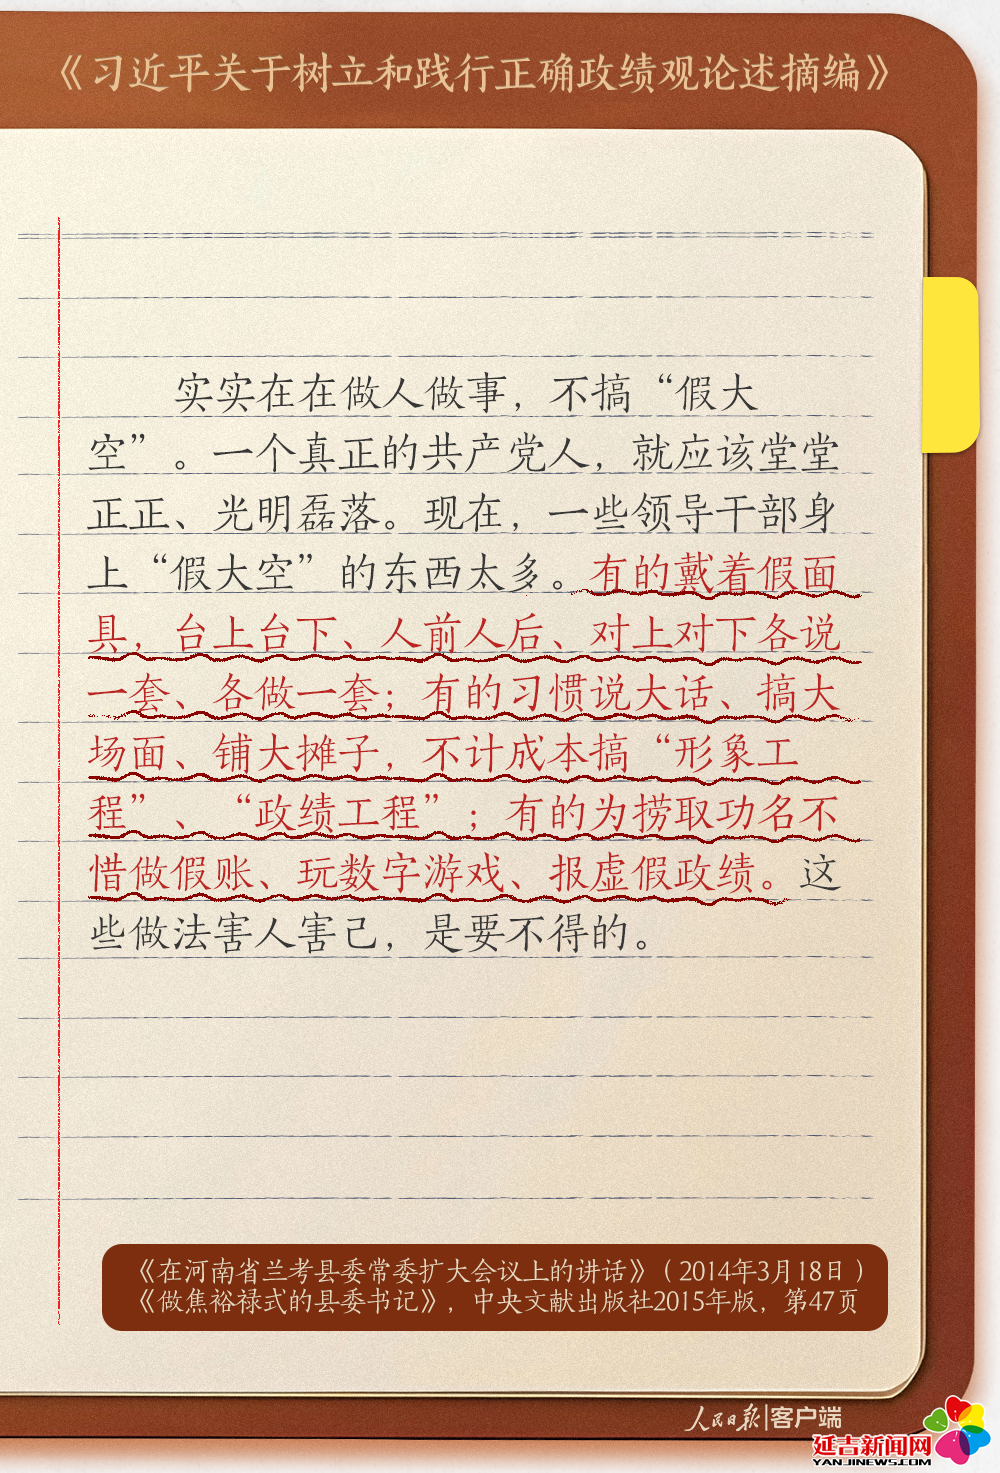 《习近平关于树立和践行正确政绩观论述摘编》
实实在在做人做事，不搞“假大
空”。一个真正的共产党人，就应该堂堂
正正、光明磊落。现在，一些领导干部身
上“假大空”的东西太多。有的戴着假面
具，台上台下、人前人后、对上对下各说
一套、各做一套；有的习惯说大话、搞大
场面、铺大摊子，不计成本搞“形象工
程”、“政绩工程”；有的为捞取功名不
惜做假账、玩数字游戏、报虚假政绩。这
些做法害人害己，是要不得的。
《在河南省兰考县委常委扩大会议上的讲话》（2014年3月18日）
《做焦裕禄式的县委书记》，中央文献出版社2015年版，第47页
人民日报|客户端
延吉新闻网
YANJINEWS.COM